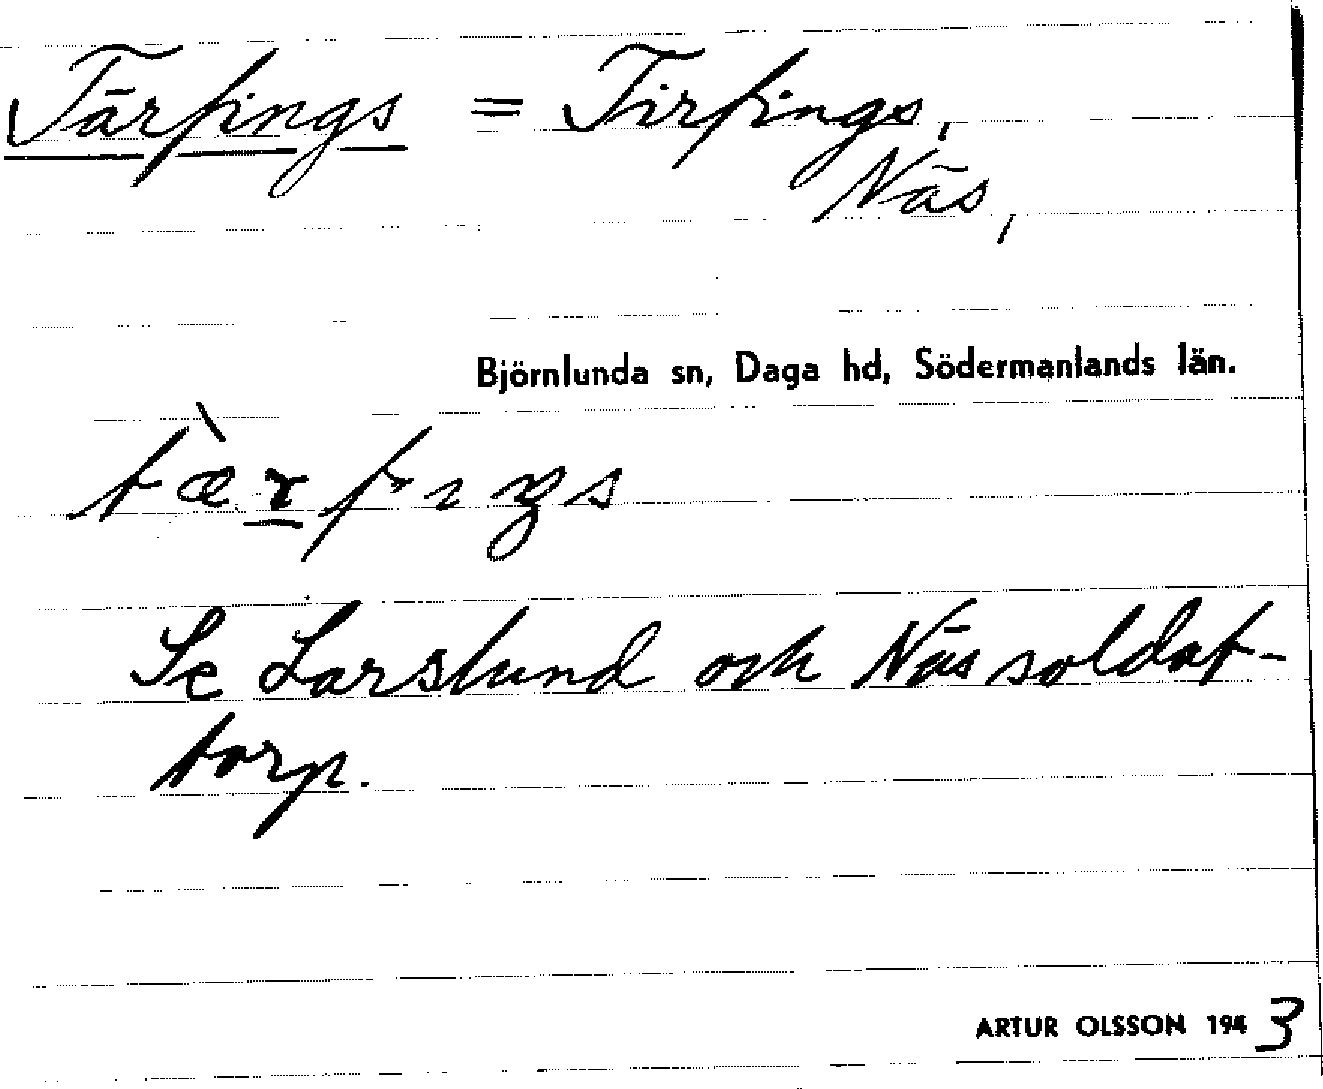 Tärpings = Tirpings,
Näs,
Björnlunda sn, Daga hd, Södermanlands län.
tæ̀r̲pıŋs
Se Larslund och Näs soldat-
torp.
ARTUR OLSSON 1943